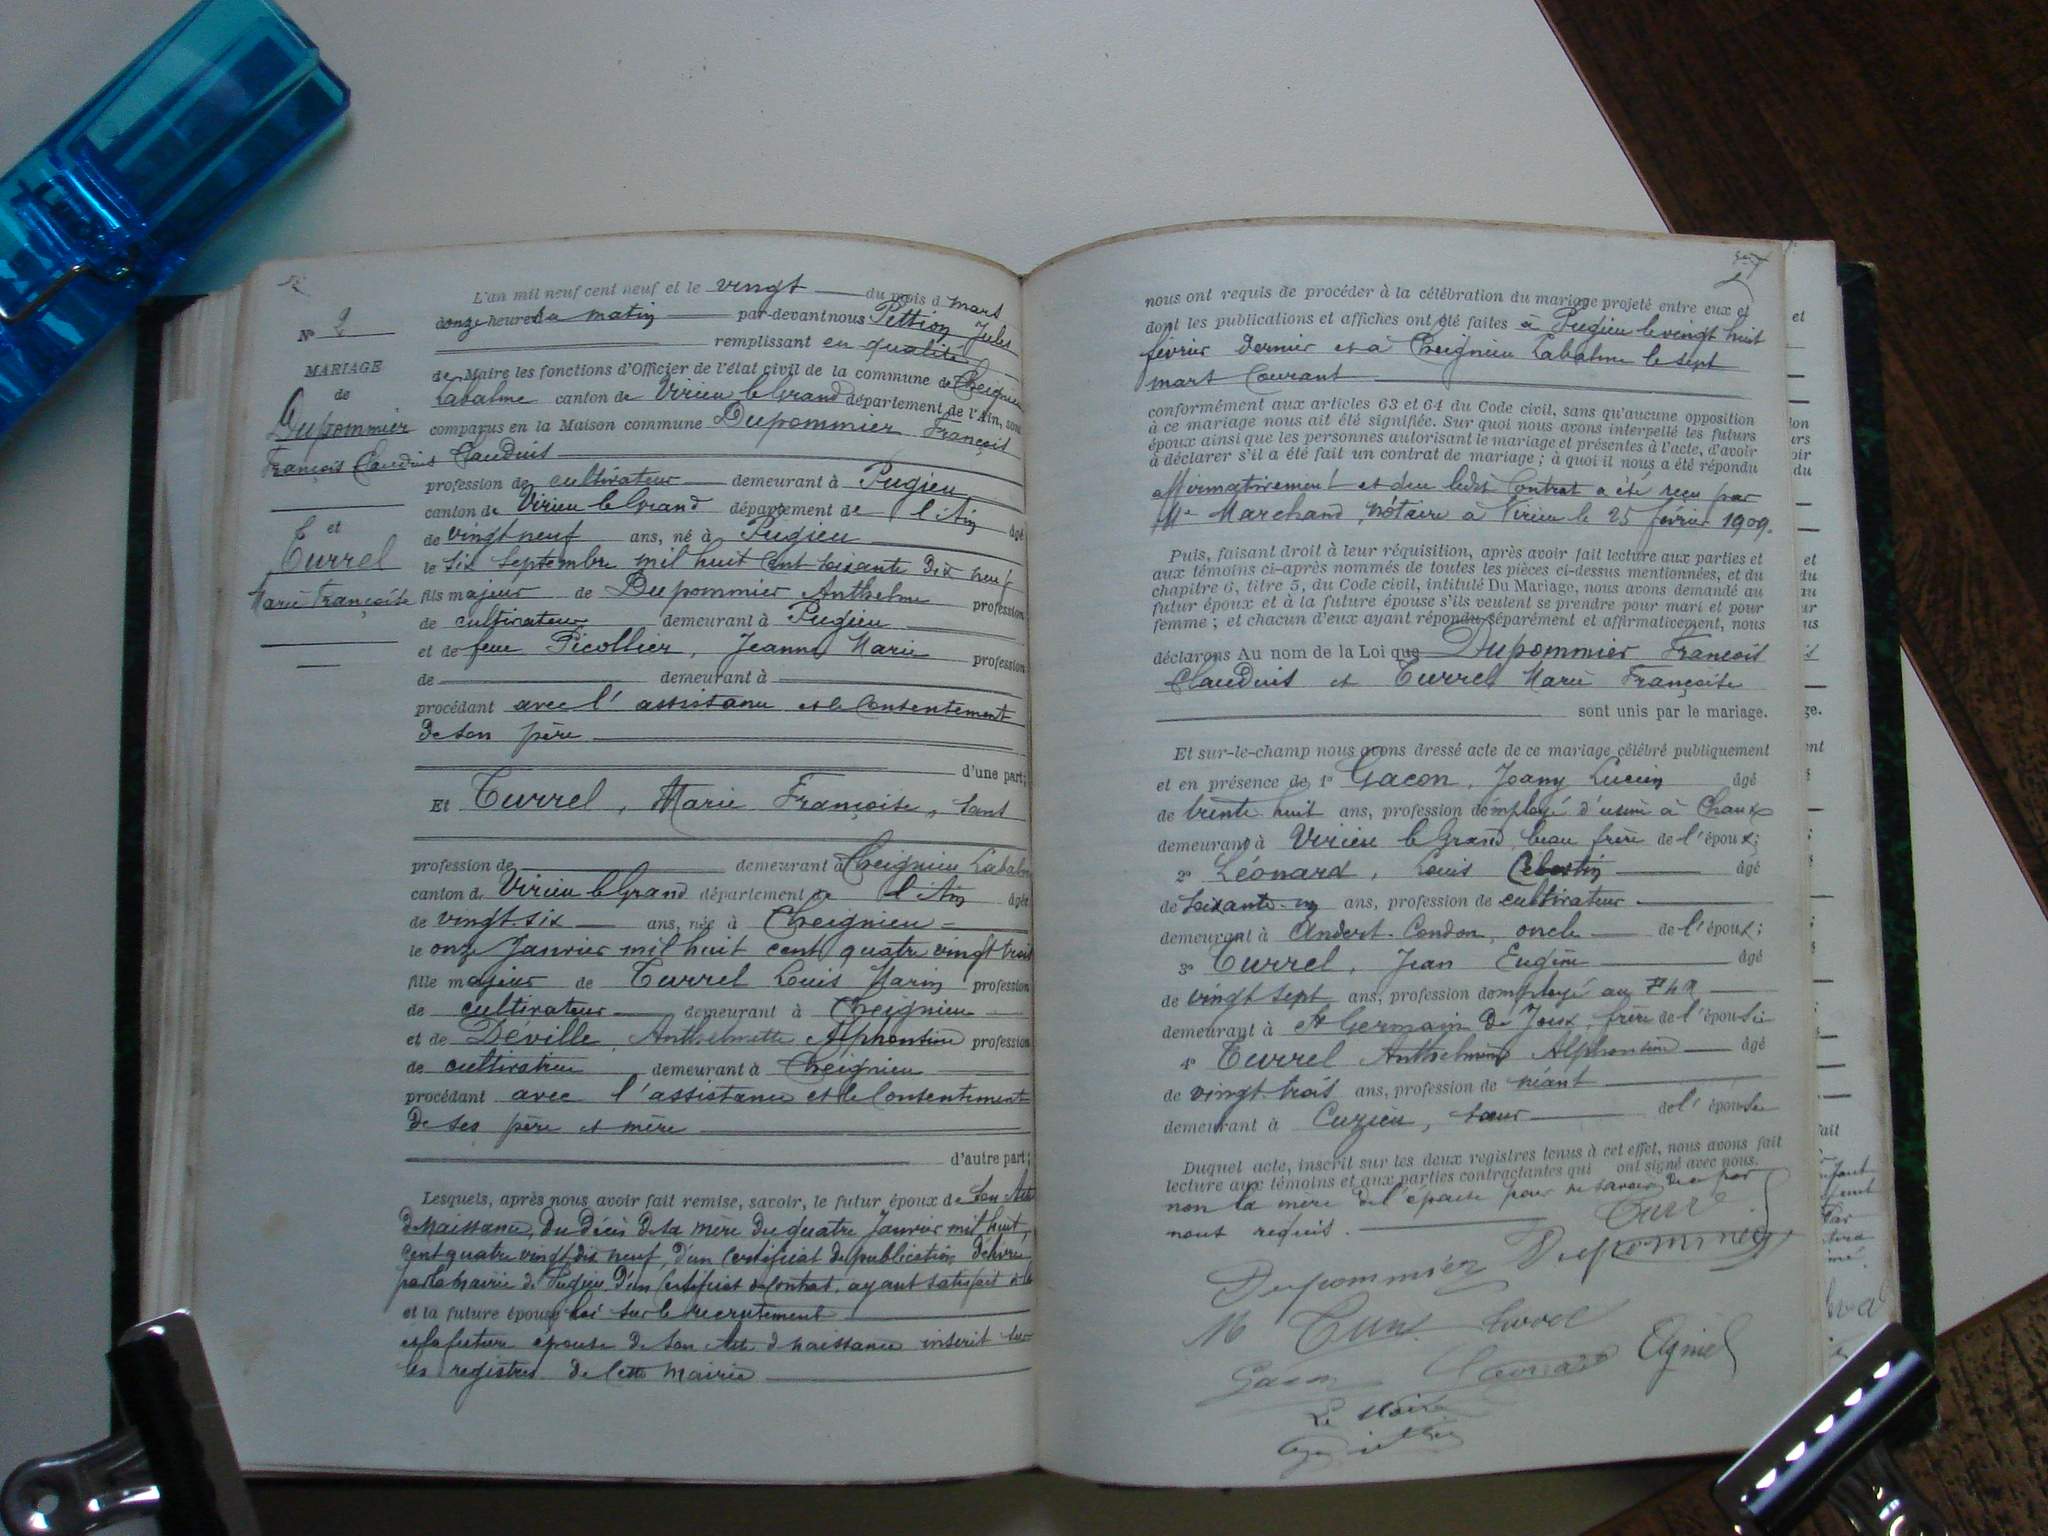 L'an mil neuf cent neuf et le vingt du mois d mars
onze heures du matin par-devant nous Pettion Jules
remplissant en qualité
de Maire les fonctions d'Officier de l'état civil de la commune de Cheignieu
Labalme canton de Virieu le Grand département de l'Ain, sont
comparus en la Maison commune Dupommier François
Claudius
profession de cultivateur demeurant à Pugieu
canton de Virieu le Grand département de l'Ain âgé
de vingt neuf ans, né à Pugieu
le six septembre mil huit cent soixante dix neuf
fils majeur de Dupommier Anthelme profession
de cultivateur demeurant à Pugieu
et de feue Picollier, Jeanne Marie profession
de demeurant à
procédant avec l'assistance et le consentement
de son père
d'une part;
Et Turrel, Marie Françoise, sans
profession de demeurant à Cheignieu Labalme
canton de Virieu le Grand département de l'Ain âgée
de vingt-six ans, née à Cheignieu
le onze Janvier mil huit cent quatre vingt trois
fille majeur de Turrel Louis Marin profession
de cultivateur demeurant à Cheignieu
et de Déville Anthelmette Alphonsine profession
de cultivatrice demeurant à Cheignieu
procédant avec l'assistance et le consentement
de ses père et mère
d'autre part;
Lesquels, après nous avoir fait remise, savoir, le futur époux de son acte
de Naissance, du décès de sa mère du quatre Janvier mil huit
cent quatre vingt dix neuf, d'un certificat de publication délivré
par la mairie de Pugieu, d'un certificat de contrat, ayant satisfait à la
et la future épouse loi sur le recrutement
et la future épouse de son acte d naissance inscrit sur
les registres de cette mairie
N° 2
MARIAGE
de
Dupommier
François Claudius
et
Turrel
Marie Françoise
nous ont requis de procéder à la célébration du mariage projeté entre eux et
dont les publications et affiches ont été faites à Pugieu le vingt huit
février dernier et à Cheignieu Labalme le sept
mars courant
conformément aux articles 63 et 64 du Code civil, sans qu'aucune opposition
à ce mariage nous ait été signifiée. Sur quoi nous avons interpellé les futurs
époux ainsi que les personnes autorisant le mariage et présentes à l'acte, d'avoir
à déclarer s'il a été fait un contrat de mariage; à quoi il nous a été répondu
affirmativement et que ledit contrat a été reçu par
Me Marchand, notaire à Virieu le 25 février 1909.
Puis, faisant droit à leur réquisition, après avoir fait lecture aux parties et
aux témoins ci-après nommés de toutes les pièces ci-dessus mentionnées, et du
chapitre 6, titre 5, du Code civil, intitulé Du Mariage, nous avons demandé au
futur époux et à la future épouse s'ils veulent se prendre pour mari et pour
femme; et chacun d'eux ayant répondu séparément et affirmativement, nous
déclarons Au nom de la Loi que Dupommier François
Claudius et Turrel Marie Françoise
sont unis par le mariage.
Et sur-le-champ nous avons dressé acte de ce mariage célébré publiquement
et en présence de 1° Gacon, Joany Lucien âgé
de trente huit ans, profession d'employé d'usine à chaux
demeurant à Virieu le Grand, beau frère de l'époux;
2° Léonard, Louis Célestin âgé
de soixante-un ans, profession de cultivateur
demeurant à Andert-Condon, oncle de l'époux;
3° Turrel, Jean Eugène âgé
de vingt sept ans, profession d employé au
demeurant à St Germain de Joux, frère de l'épouse
4° Turrel Anthelmine Alphonsine âgé
de vingt-trois ans, profession de néant
demeurant à Cuzieu, sœur de l'épouse
Duquel acte, inscrit sur les deux registres tenus à cet effet, nous avons fait
lecture aux témoins et aux parties contractantes qui ont signé avec nous.
non la mère de l'épouse pour ne savoir de ce par
nous requis.
Dupommier Dupommier
Agniel
Le Maire